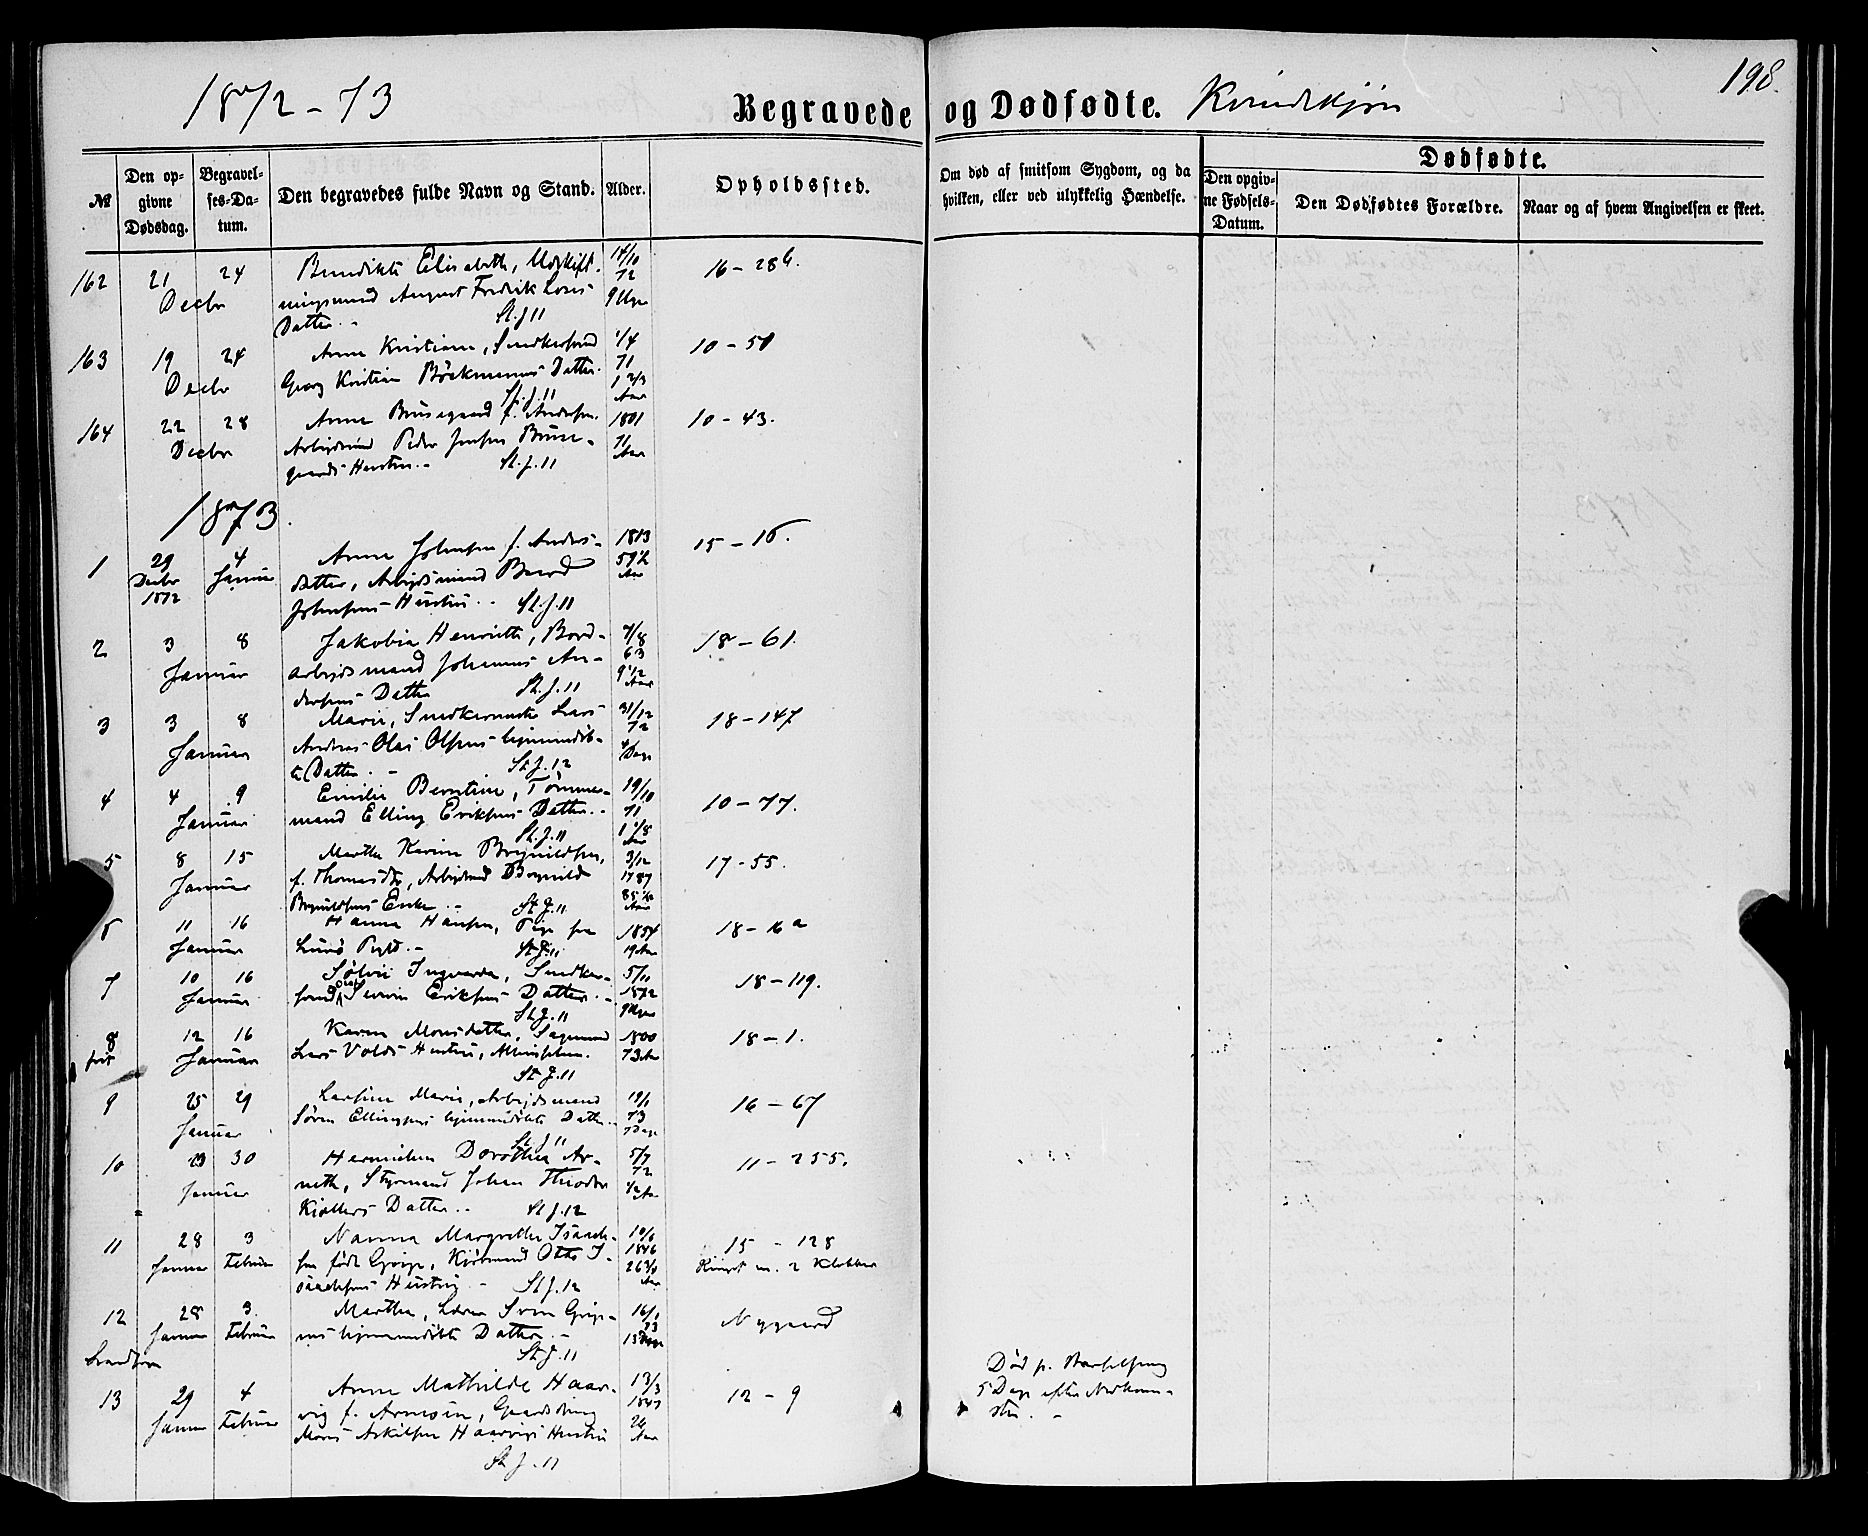 198.
1872-73
Begravede og Dødfødte. Kvindekjøn
№
Den opgivne Dødsdag.
Begravelses-Datum.
Den begravedes fulde Navn og Stand.
Alder.
Opholdssted.
Om død af smitsom Sygdom, og da hvilken, eller ved ulykkelig Hændelse.
Dødfødte.
Den opgivne Fødsels-Datum.
Den Dødfødtes Forældre.
Naar og af hvem Angivelsen er skeet.
162 21 24 Benedikte Elisabeth, 14/10 16-28b.
Decbr August Fredrik 72
Datter.- St. J 11 9 Uger
163 19 24 Anne Kristiane, Snedkersvend 1/4 10-51
Decbr Georg Kristian Böckmanns Datter. 71
St. J. 11 1 2/3 Aar
164 22 28 Anne Brusegaard f. Andersen. 1801 10-43.
Decbr Arbeidsmd Peder Jensen Bruse- 71
gaards Hustru.- St. J. 11 Aar
1873.
1 29 4 Anne Johnsen f. Anders- 1813 15-16.
Decbr Januar datter, Arbeidsmand Baard 59 1/2 Aar
1872 Johnsens Hustru.. St. J. 11
2 3 8 Jakobia Henriette, Bord- 7/8 18-61.
Januar arbeidsmand Johannes An- 63
dersens Datter St. J. 11 9 1/2 Aar
3 3 8 Marie, Snedkersvend Lars 31/12 18-147
Januar Andreas Olai Olsens hjemmedöb- 72
te Datter.- St J. 12 4 Dage
4 4 9 Emilie Berntine, Tømmer- 19/10 10-77.
Januar mand Elling Eriksens Datter.- 71
St. J. 11 1 1/8 Aar
5 8 15 Marthe Karine Brynildsen, 3/12 17-55.
Januar f. Thomasdtr, Arbeidsmd Brynild 1787
Brynildsens Enke.- St J. 11 85 Aar
6 11 16 Hanna Hansen, Pige fra 1854 18-16a
Januar Lurö Pgld.- St J. 11 19 Aar
7 10 16 Sölvi Ingvarda, Snedker- 5/11 18-119.
Januar svend Olaf Severin Eriksens Datter.- 1872
St J. 11 9 Uger
8 12 16 Karen Monsdatter, 1800 18-1.
frit Januar Lars Volds Hustru, 73 Aar
St J. 11
9 25 29 Larsine Marie, Arbeidsmand 19/1 16-67
Januar Søren Ellingsens hjemmedöbte Datter. 73
St J 11 7 Dage
10 23 30 Dorothea Ag- 5/7 11-255.
Januar nethe, Styrmand Johan Theodor 72
Datter.. St J. 12 1/2 Aar
11 28 3 Nanna Margrethe Isaach- 10/6 15-128
Januar Februar sen födt Grip, Kjöbmand Otto I- 1846 Ringet m. 2 Klokker
saachsens Hustru.- St J. 12 26 Aar
12 28 3 Marthe, Lærer Sven 16/1 Nygaard
Januar Februar hjemmedöbte Datter.- 73
St J. 11 13 Dage
13 29 4 Anne Mathilde Haar- 13/3 12-9
Januar Februar vig f. Arnesen, 1847
Mons Askilsen Haarvigs Hustru Aar
St J. 11
Död p. Barselseng
5 Dage efter Nedkom-
sten.-